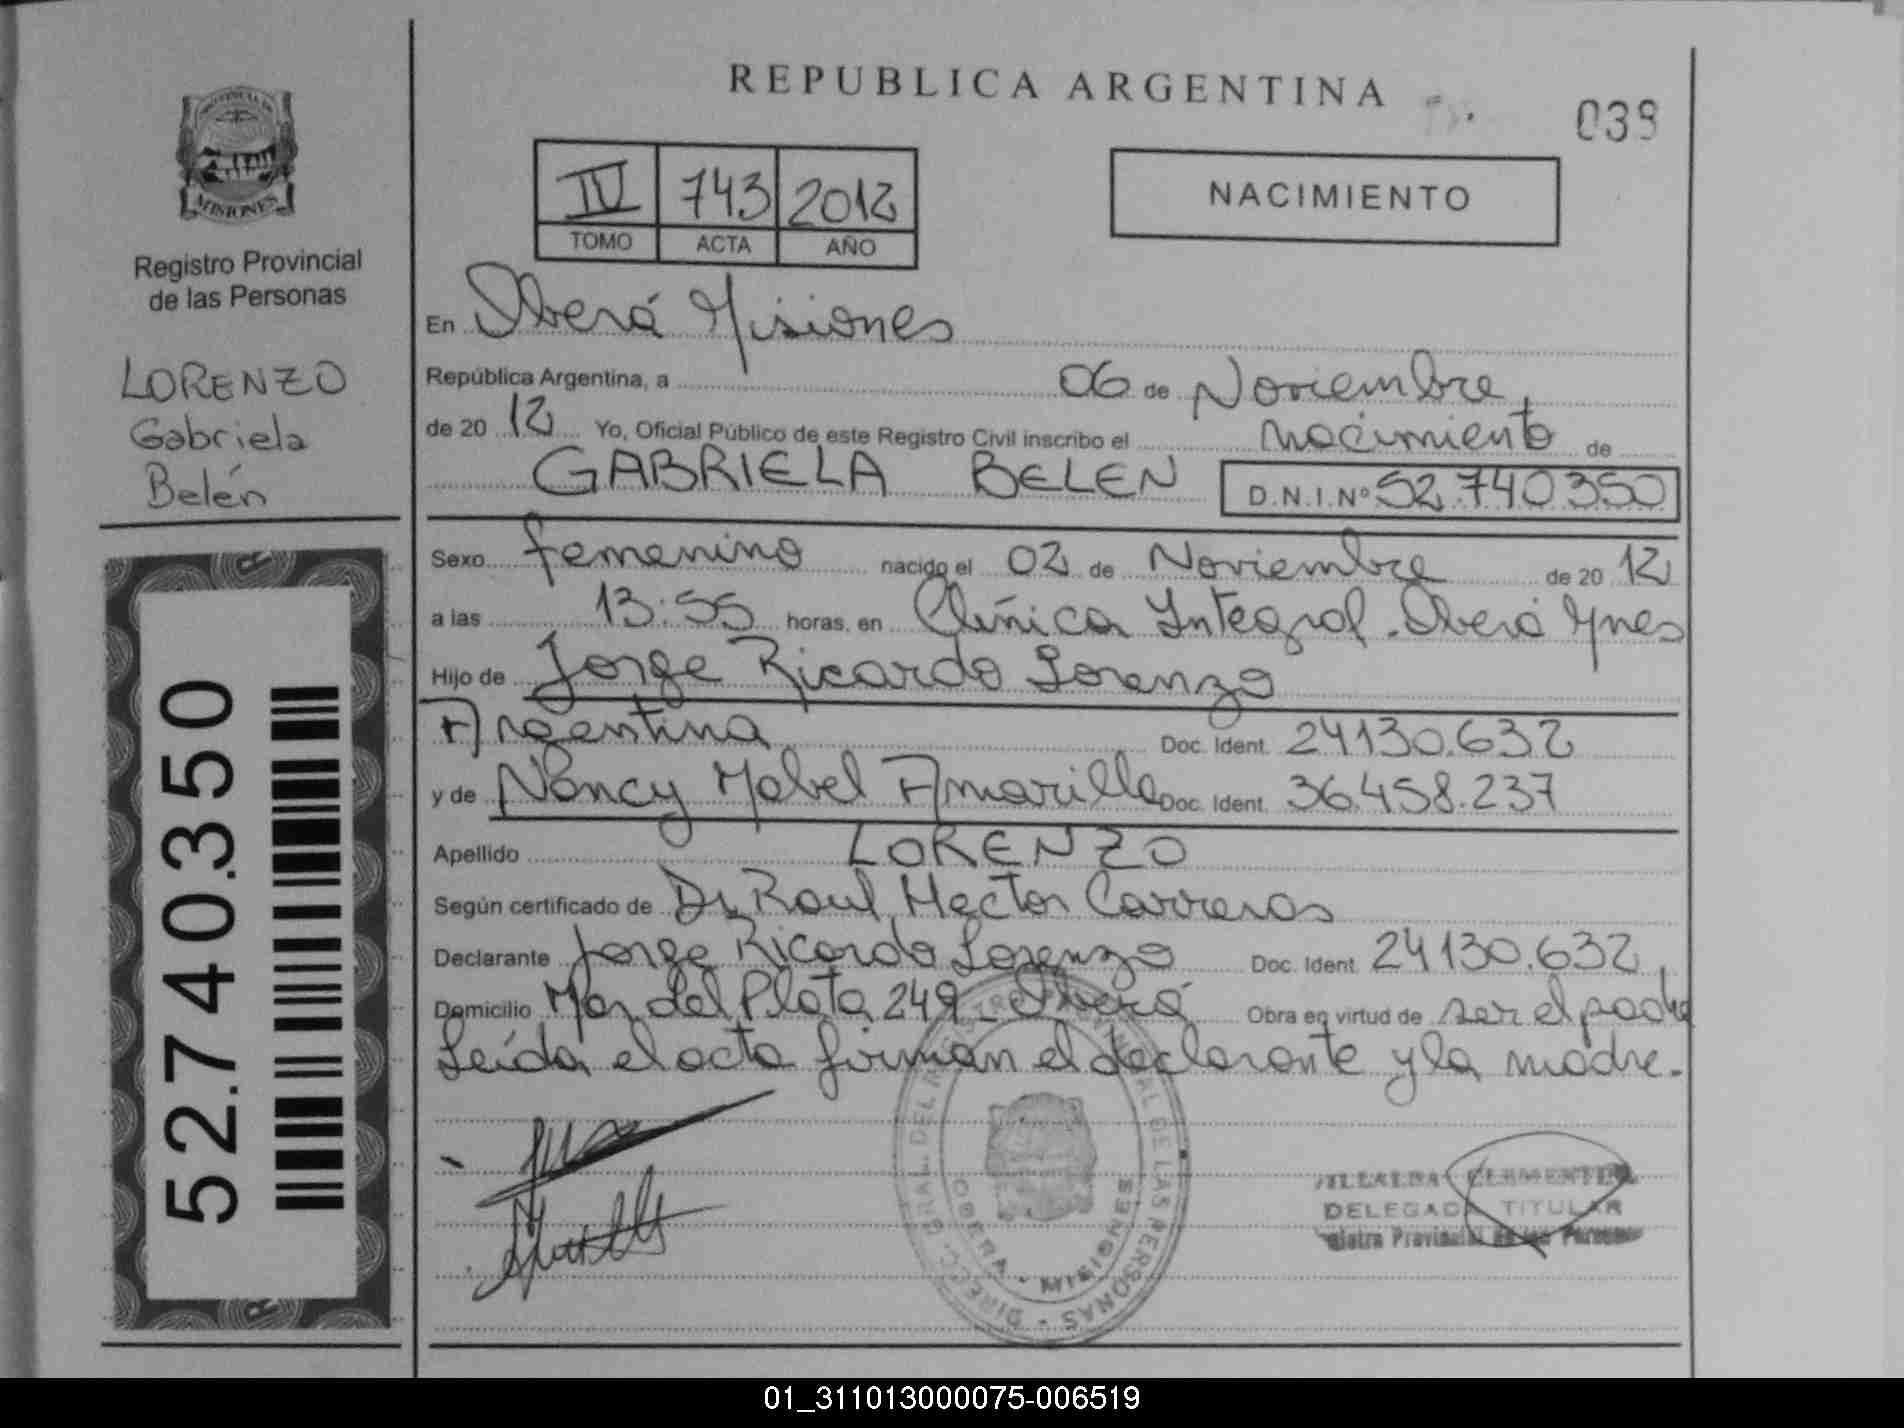 REPUBLICA ARGENTINA
039
PROVINCIA DE
MISIONES
Registro Provincial
de las Personas
LORENZO
Gabriela
Belén
52.740.350
IV 743 2012
TOMO ACTA AÑO
NACIMIENTO
En Oberá Misiones
República Argentina, a 06 de Noviembre
de 20 12 Yo, Oficial Público de este Registro Civil inscribo el nacimiento de
GABRIELA BELEN D.N.I.Nº 52.740350
Sexo femenino nacido el 02 de Noviembre de 20 12
a las 13:55 horas, en Clínica Integral. Oberá Mnes
Hijo de Jorge Ricardo Lorenzo
Argentina Doc. Ident. 24130.632
y de Nancy Mabel Amarilla Doc. Ident. 36.458.237
Apellido LORENZO
Según certificado de Dr. Raul Hector Carreras
Declarante Jorge Ricardo Lorenzo Doc. Ident. 24130.632
Domicilio Mar del Plata 249 - Oberá Obra en virtud de ser el padre
Leída el acta firman el declarante y la madre.
OBERA - MISIONES
VILLALBA CLEMENTINA
DELEGADA TITULAR
Registro Provincial de las Personas
01_311013000075-006519